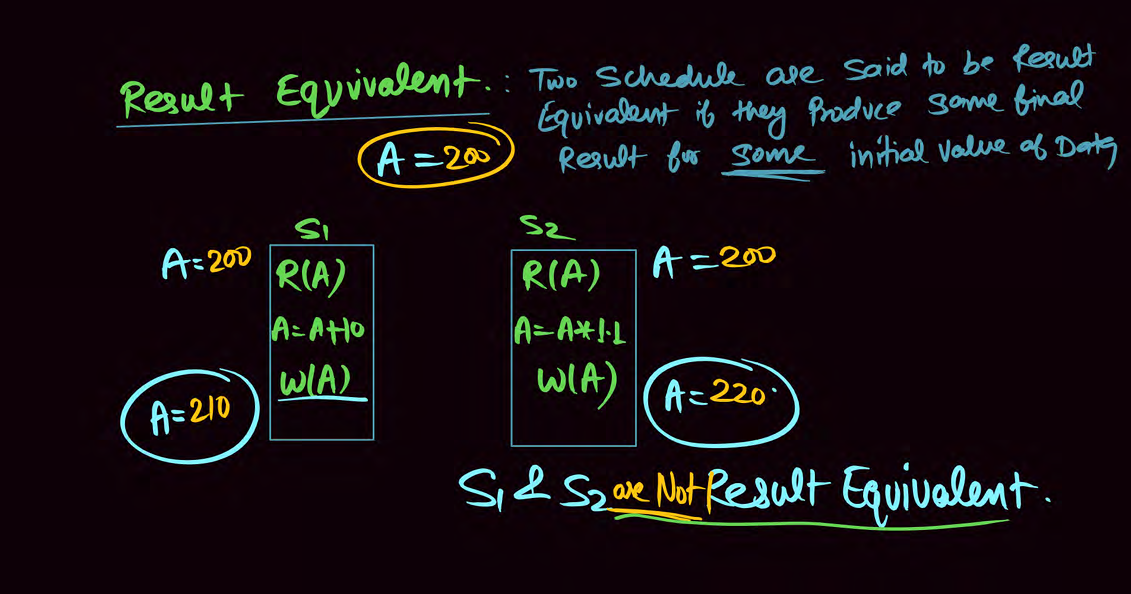 Result Equivalent. : Two Schedule are said to be Result
Equivalent if they Produce same final
Result for some initial value of Data
A = 200
S1 S2
A = 200 R(A) R(A) A = 200
A = A+10 A = A*1.1
W(A) W(A)
A = 210 A = 220
S1 & S2 are Not Result Equivalent.